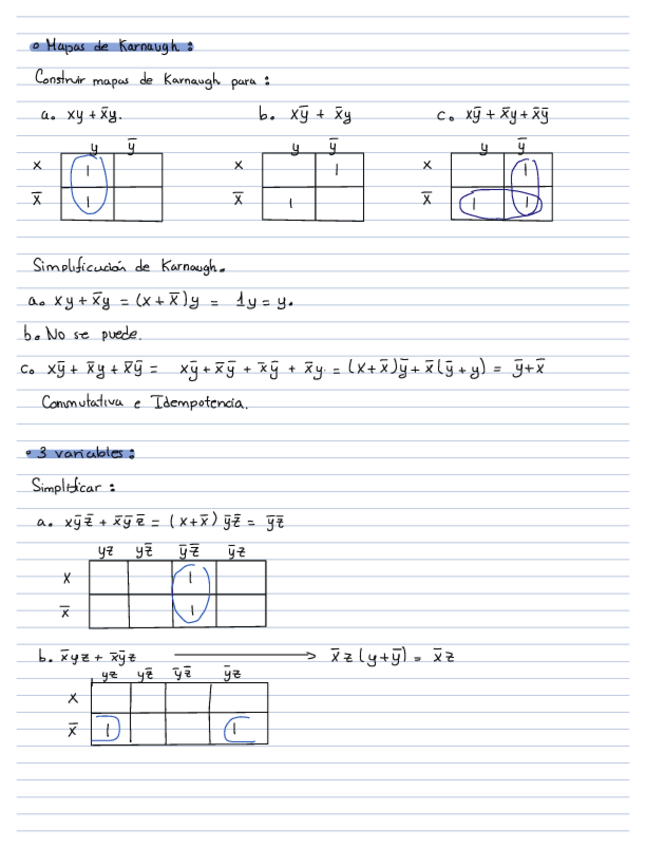 • Mapas de Karnaugh :
Construir mapas de Karnaugh para :
a. xy + x̄y. b. xȳ + x̄y c. xȳ + x̄y + x̄ȳ
y ȳ y ȳ y ȳ
x 1 x 1 x 1
x̄ 1 x̄ 1 x̄ 1 1
Simplificación de Karnaugh.
a. xy + x̄y = (x + x̄)y = 1y = y.
b. No se puede.
c. xȳ + x̄y + x̄ȳ = xȳ + x̄ȳ + x̄ȳ + x̄y = (x+x̄)ȳ + x̄(ȳ+y) = ȳ+x̄
Conmutativa e Idempotencia.
• 3 variables :
Simplificar :
a. xȳz̄ + x̄ȳz̄ = (x+x̄) ȳz̄ = ȳz̄
yz yz̄ ȳz̄ ȳz
x 1
x̄ 1
b. x̄yz + x̄ȳz → x̄z(y+ȳ) = x̄z
yz yz̄ ȳz̄ ȳz
x
x̄ 1 1